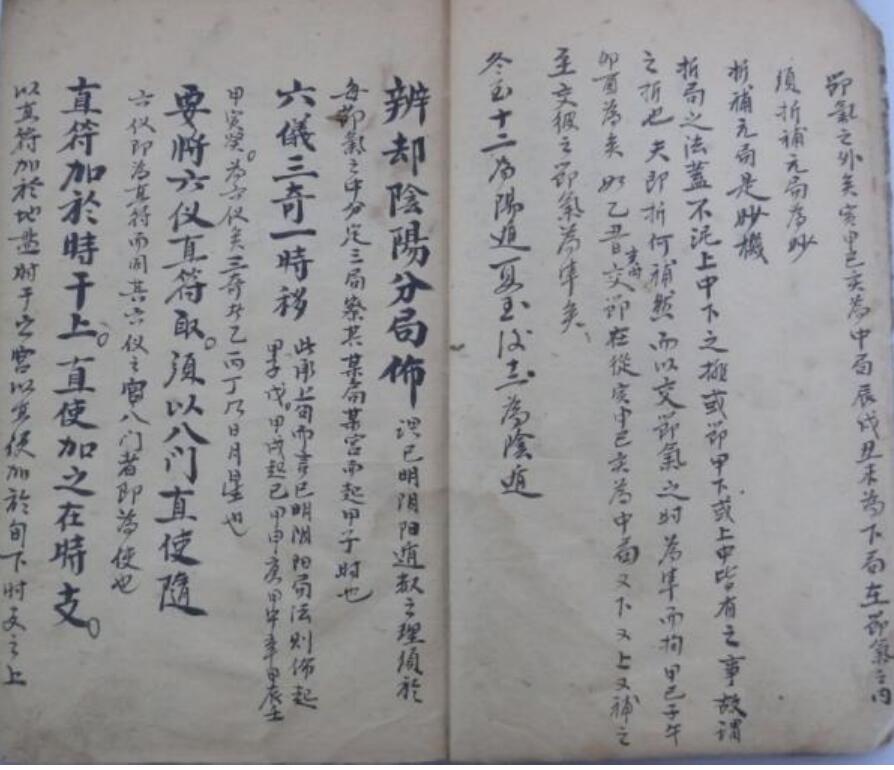 節氣之外矣寅申巳亥為中局辰戌丑未為下局在節氣之内
須折補元局為妙
折補元局是妙機
折局之法蓋不泥上中下之推或節甲下或上中皆有之事故謂
之折也夫即折何補然而以交節氣之时為準而拘甲己子午
卯酉為矣如乙丑日交節在從寅申巳亥為中局又下又上又補之
至交彼之節氣為準矣
冬至十二為陽遁夏至後十二為陰遁
辨却陰陽分局佈 謂已明阴阳遁数之理須於
每節氣之中分定三局察其某局某宮而起甲子时也
六儀三奇一時移 此承上句而言已明阴阳局法则佈起
甲子戊甲戌起己甲申庚甲午辛甲辰壬
甲寅癸為六仪矣三奇者乙丙丁乃日月星也
要將六仪直符取須以八门直使隨
六仪即為直符而同其六仪之宮八门者即為使也
直符加於時干上直使加之在時支
以直符加於地盘时干之宮以直使加於旬下时支之上